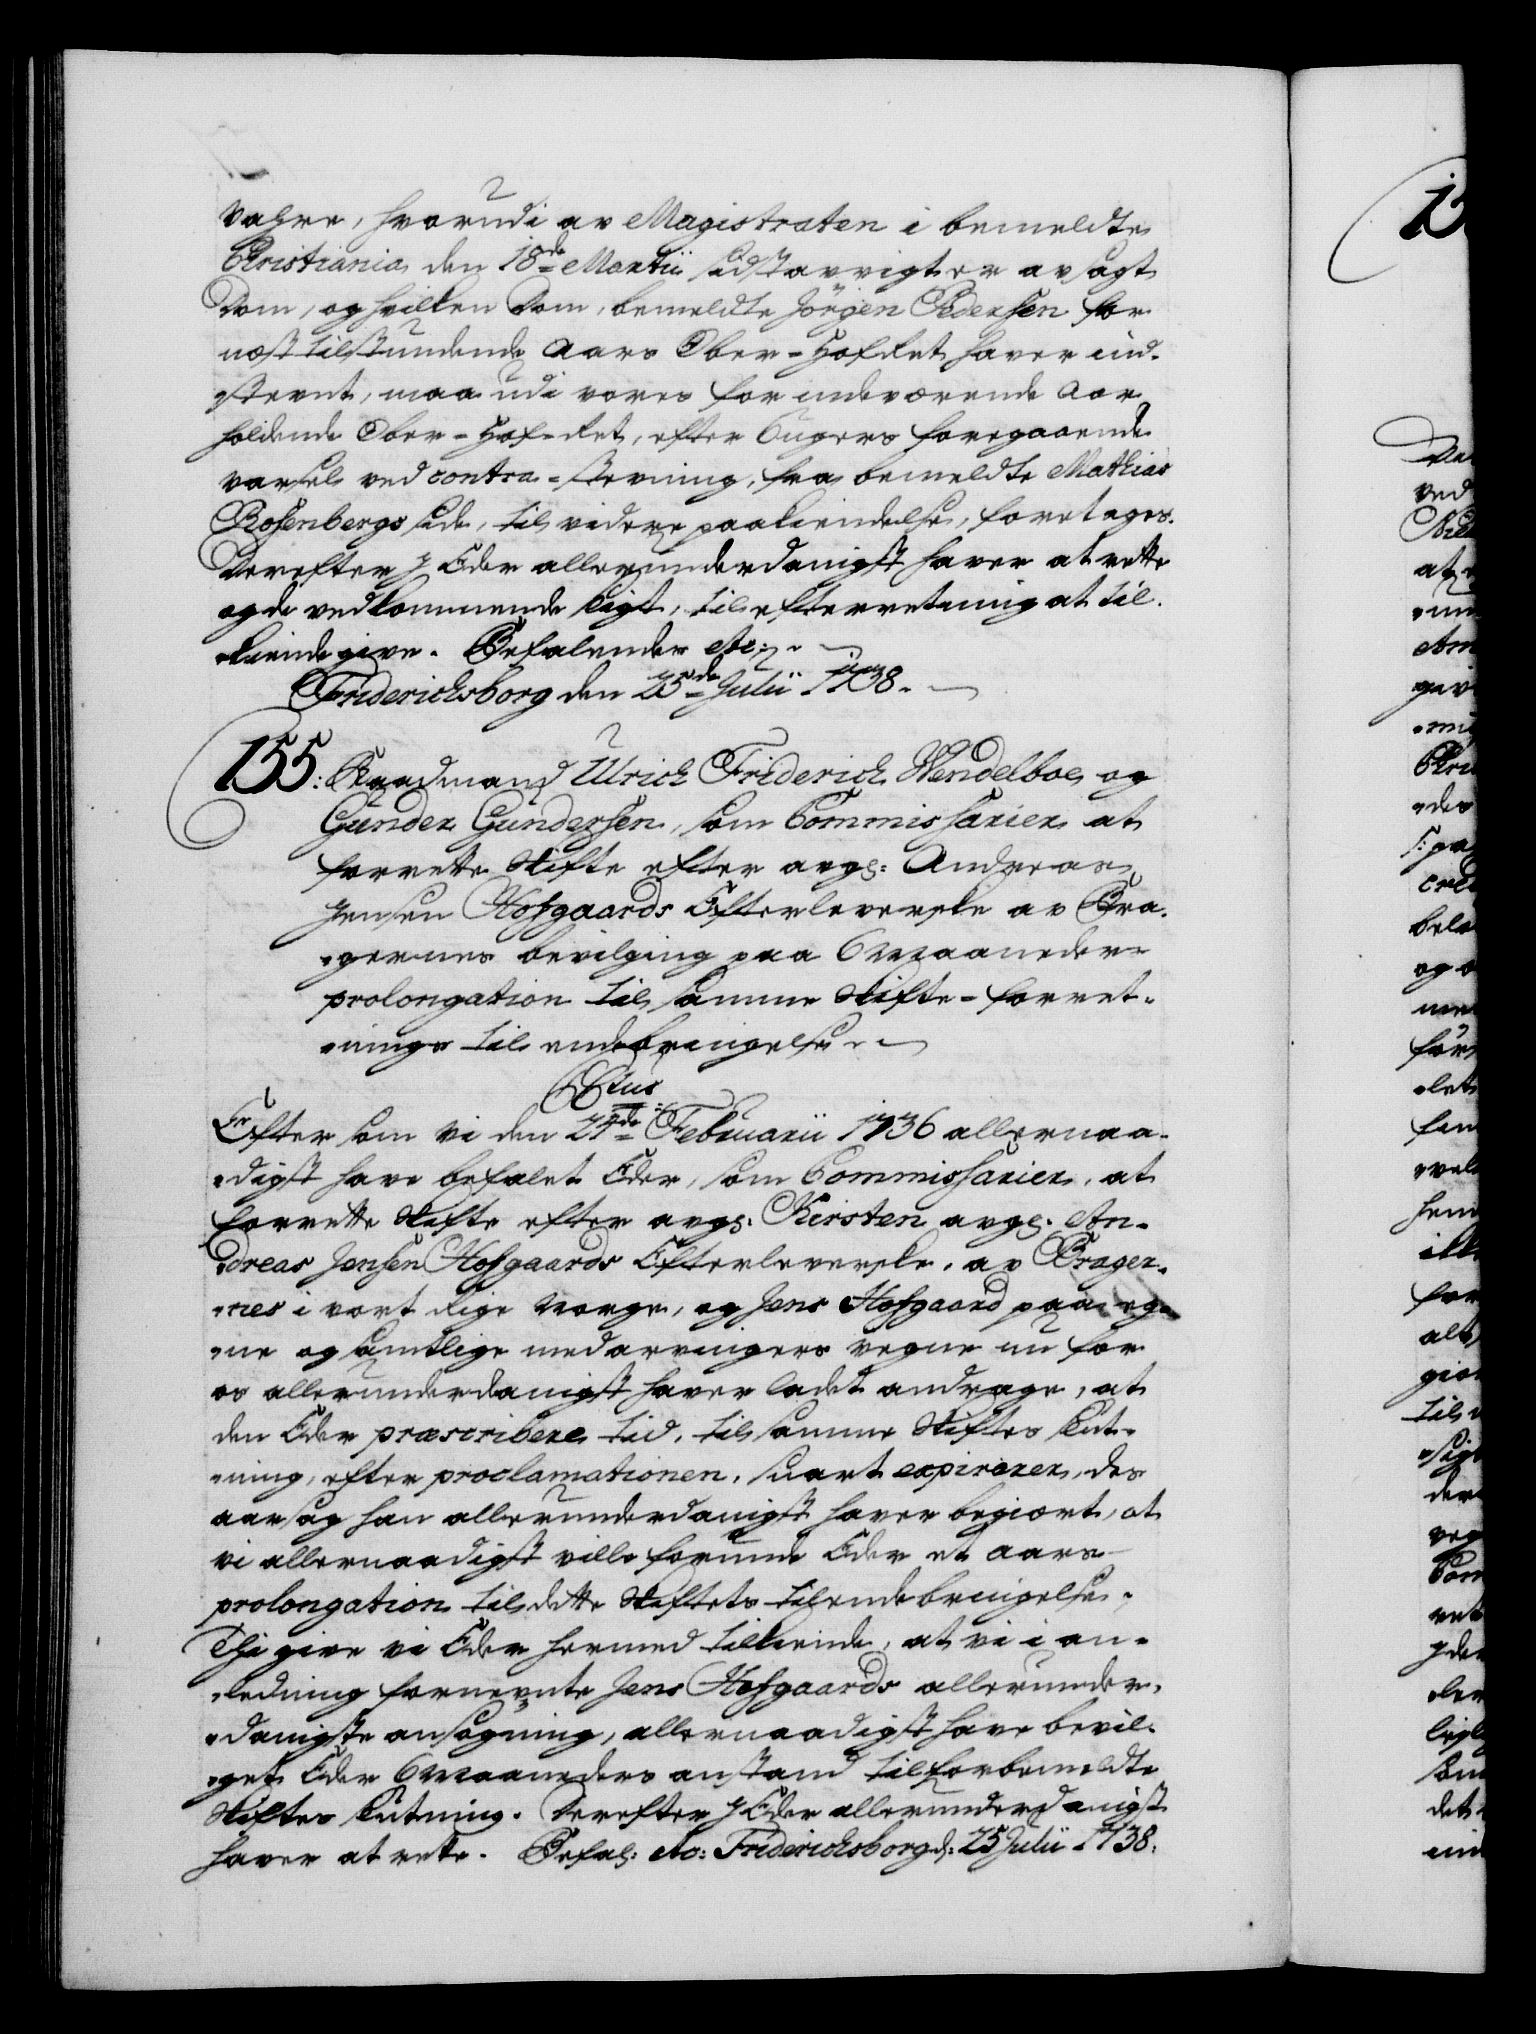 vahre, hvorudi av Magistraten i bemeldte
Christiania den 18de Martii sidst avvigt er avsagt
Dom, og hvilken Dom, bemeldte Jörgen Pedersen for
næst tilstundende Aars Ober-Hof-Ret haver ind-
stevnt, maa udi vores for indeværende Aar
holdende Ober-Hof-Ret, efter 6 ugers foregaaende
varsel ved contra-stevning, fra bemeldte Mathias
Rosenbergs side, til videre paakiendelse, foretages.
Derefter I Eder allerunderdanigst haver at rette
og de vedkommende sligt, til efterretning at til-
kiende give. Befalendes etc:
Friderichsborg den 25de Julii 1738.
155: Raadmand Ulrich Friderich Wendelboe og
Gunder Gundersen, som Commissarier at
forrette Skifte efter avg: Andreas
Jensen Hofgaards Efterleverske av Bra-
gernes bevilging paa 6 Maaneders
prolongation til samme Skifte-forret-
nings til endebringelse
C6tus
Eftersom vi den 24de Februarii 1736 allernaa-
digst have befalet Eder, som Commissarier, at
forrette Skifte efter avg: Kirsten avg: An-
dreas Jensen Hofgaards Efterleverske, av Brager-
nes i vort Rige Norge, og Jens Hofgaard paa eg-
ne og samtlige medarvingers vegne nu for
os allerunderdanigst haver ladet andrage, at
den Eder præscriberede tid, til samme Skiftes slut-
ning, efter proclamationen, snart expirerer, des
aarsag han allerunderdanigst haver begiært, at
vi allernaadigst ville forunde Eder et aars
prolongation til dette Skiftets tilendebringelse.
Thi give vi Eder hermed tilkiende, at vi i an-
ledning fornevnte Jens Hofgaards allerunder-
danigste ansøgning, allernaadigst have bevil-
get Eder 6 Maaneders anstand til forbemeldte
Skiftes slutning. Derefter I Eder allerunderdanigst
haver at rette. Befal: etc: Friderichsborg d: 25 Julii 1738.